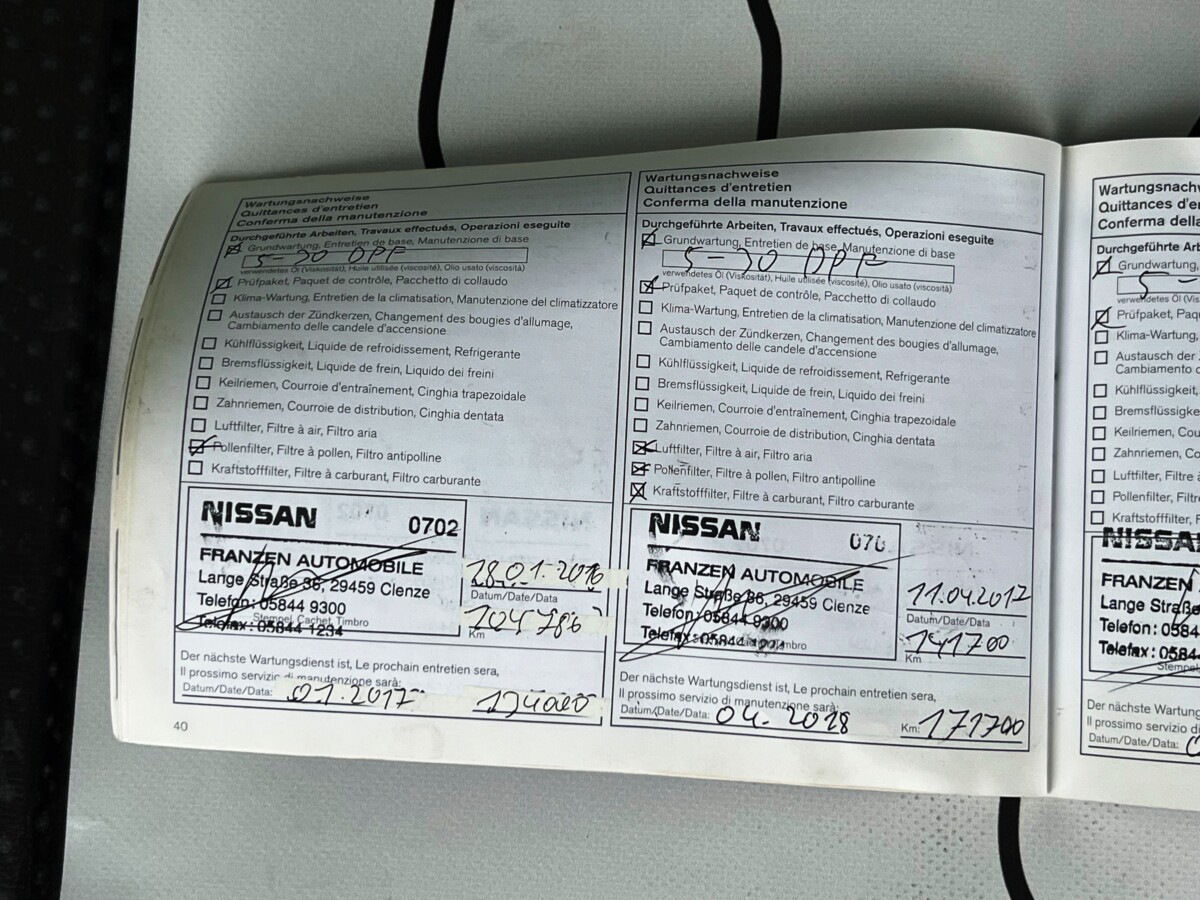 Wartungsnachweise
Quittances d'entretien
Conferma della manutenzione
Durchgeführte Arbeiten, Travaux effectués, Operazioni eseguite
Grundwartung, Entretien de base, Manutenzione di base
5-30 DPF
verwendetes Öl (Viskosität), Huile utilisée (viscosité), Olio usato (viscosità)
Prüfpaket, Paquet de contrôle, Pacchetto di collaudo
Klima-Wartung, Entretien de la climatisation, Manutenzione del climatizzatore
Austausch der Zündkerzen, Changement des bougies d'allumage,
Cambiamento delle candele d'accensione
Kühlflüssigkeit, Liquide de refroidissement, Refrigerante
Bremsflüssigkeit, Liquide de frein, Liquido dei freini
Keilriemen, Courroie d'entraînement, Cinghia trapezoidale
Zahnriemen, Courroie de distribution, Cinghia dentata
Luftfilter, Filtre à air, Filtro aria
Pollenfilter, Filtre à pollen, Filtro antipolline
Kraftstofffilter, Filtre à carburant, Filtro carburante
NISSAN 0702
FRANZEN AUTOMOBILE
Lange Straße 36, 29459 Clenze
Telefon: 05844 9300
Stempel, Cachet, Timbro
Telefax: 05844 1234
18.01.2016
Datum/Date/Data
104786
Km
Der nächste Wartungsdienst ist, Le prochain entretien sera,
Il prossimo servizio di manutenzione sarà:
Datum/Date/Data: 01.2017
40
Wartungsnachweise
Quittances d'entretien
Conferma della manutenzione
Durchgeführte Arbeiten, Travaux effectués, Operazioni eseguite
Grundwartung, Entretien de base, Manutenzione di base
5-30 DPF
verwendetes Öl (Viskosität), Huile utilisée (viscosité), Olio usato (viscosità)
Prüfpaket, Paquet de contrôle, Pacchetto di collaudo
Klima-Wartung, Entretien de la climatisation, Manutenzione del climatizzatore
Austausch der Zündkerzen, Changement des bougies d'allumage,
Cambiamento delle candele d'accensione
Kühlflüssigkeit, Liquide de refroidissement, Refrigerante
Bremsflüssigkeit, Liquide de frein, Liquido dei freini
Keilriemen, Courroie d'entraînement, Cinghia trapezoidale
Zahnriemen, Courroie de distribution, Cinghia dentata
Luftfilter, Filtre à air, Filtro aria
Pollenfilter, Filtre à pollen, Filtro antipolline
Kraftstofffilter, Filtre à carburant, Filtro carburante
NISSAN 070
FRANZEN AUTOMOBILE
Lange Straße 36, 29459 Clenze
Telefon: 05844 9300
Telefax: 05844
11.04.2017
Datum/Date/Data
141700
Km
Der nächste Wartungsdienst ist, Le prochain entretien sera,
Il prossimo servizio di manutenzione sarà:
Datum/Date/Data: 04.2018 Km: 171700
Wartungsnachw
Quittances d'e
Conferma della
Durchgeführte
Grundwartung,
5-
verwendetes Öl (Vis
Prüfpaket, Paqu
Klima-Wartung,
Austausch der
Cambiamento d
Kühlflüssigkeit,
Bremsflüssigke
Keilriemen, Cou
Zahnriemen, Co
Luftfilter, Filtre à
Pollenfilter, Filtr
Kraftstofffilter, F
NISSAN
FRANZEN
Lange Straße
Telefon: 0584
Telefax: 0584
Stempe
Der nächste Wartung
Il prossimo servizio di
Datum/Date/Data: